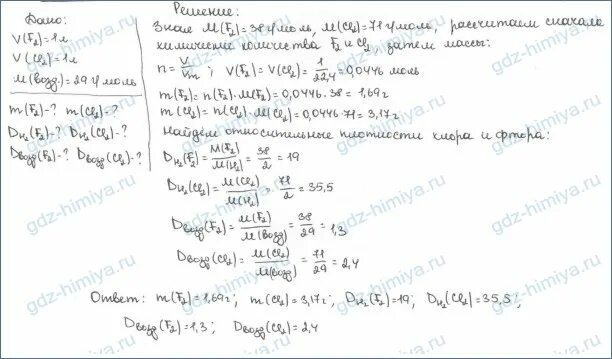 Дано:
V(F₂)=1л
V(Cl₂)=1л
M(возд.)=29 г/моль
m(F₂)-? m(Cl₂)-?
D_H₂(F₂)-? D_H₂(Cl₂)-?
Dвозд(F₂)-? Dвозд(Cl₂)-?
Решение:
Зная M(F₂)=38 г/моль, M(Cl₂)=71 г/моль, рассчитаем сначала
химические количества F₂ и Cl₂, затем массы:
n=V/Vm; V(F₂)=V(Cl₂)=1/22,4=0,0446 моль
m(F₂)=n(F₂)·M(F₂)=0,0446·38=1,69г
m(Cl₂)=n(Cl₂)·M(Cl₂)=0,0446·71=3,17г
Найдем относительные плотности хлора и фтора:
D_H₂(F₂)=M(F₂)/M(H₂)=38/2=19
D_H₂(Cl₂)=M(Cl₂)/M(H₂)=71/2=35,5
Dвозд(F₂)=M(F₂)/M(возд)=38/29=1,3
Dвозд(Cl₂)=M(Cl₂)/M(возд)=71/29=2,4
Ответ: m(F₂)=1,69г; m(Cl₂)=3,17г; D_H₂(F₂)=19; D_H₂(Cl₂)=35,5;
Dвозд(F₂)=1,3; Dвозд(Cl₂)=2,4
gdz-himiya.ru
gdz-himiya.ru
gdz-himiya.ru
gdz-himiya.ru
gdz-himiya.ru
gdz-himiya.ru
gdz-himiya.ru
gdz-himiya.ru